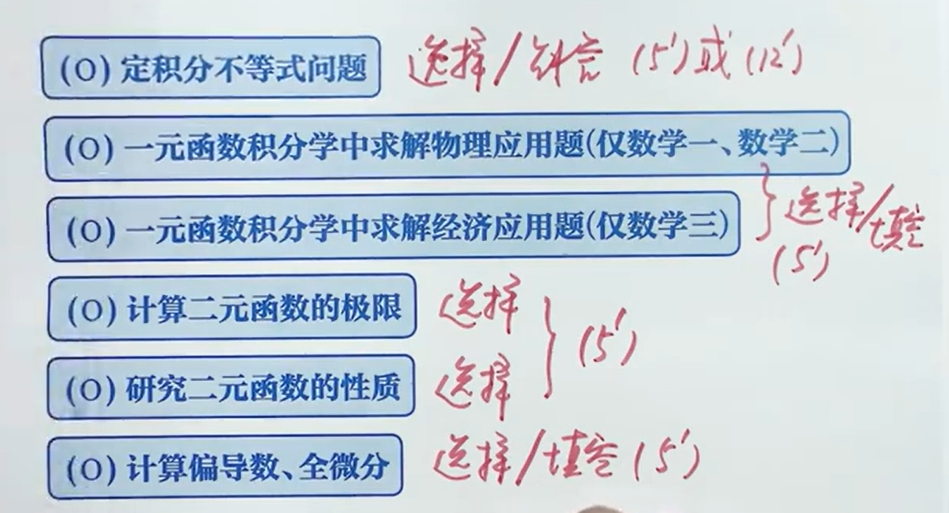 (O) 定积分不等式问题 选择/解答 (5') 或 (12')
(O) 一元函数积分学中求解物理应用题(仅数学一、数学二)
(O) 一元函数积分学中求解经济应用题(仅数学三) 选择/填空
(5')
(O) 计算二元函数的极限 选择
(5')
(O) 研究二元函数的性质 选择
(O) 计算偏导数、全微分 选择/填空 (5')